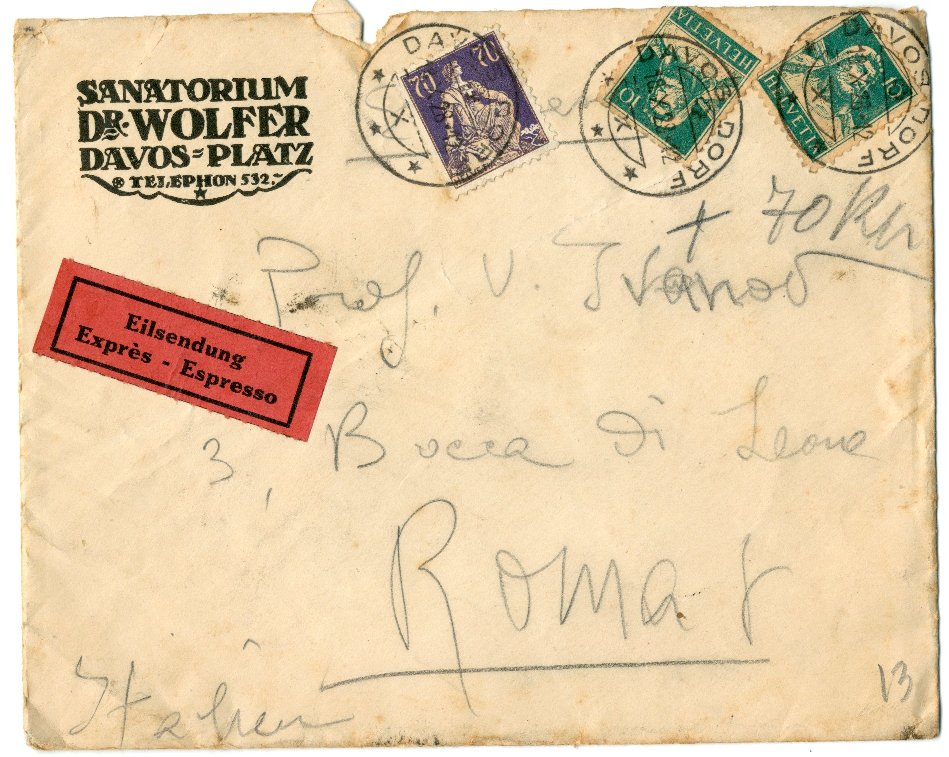 SANATORIUM
DR. WOLFER
DAVOS=PLATZ
TELEPHON 532.
70 70
HELVETIA
10
HELVETIA
10
DAVOS DORF
DAVOS DORF
+ 70
Eilsendung
Exprès - Espresso
Prof. V. Ivanov
3, Bocca di Leone
Roma
Italien
13